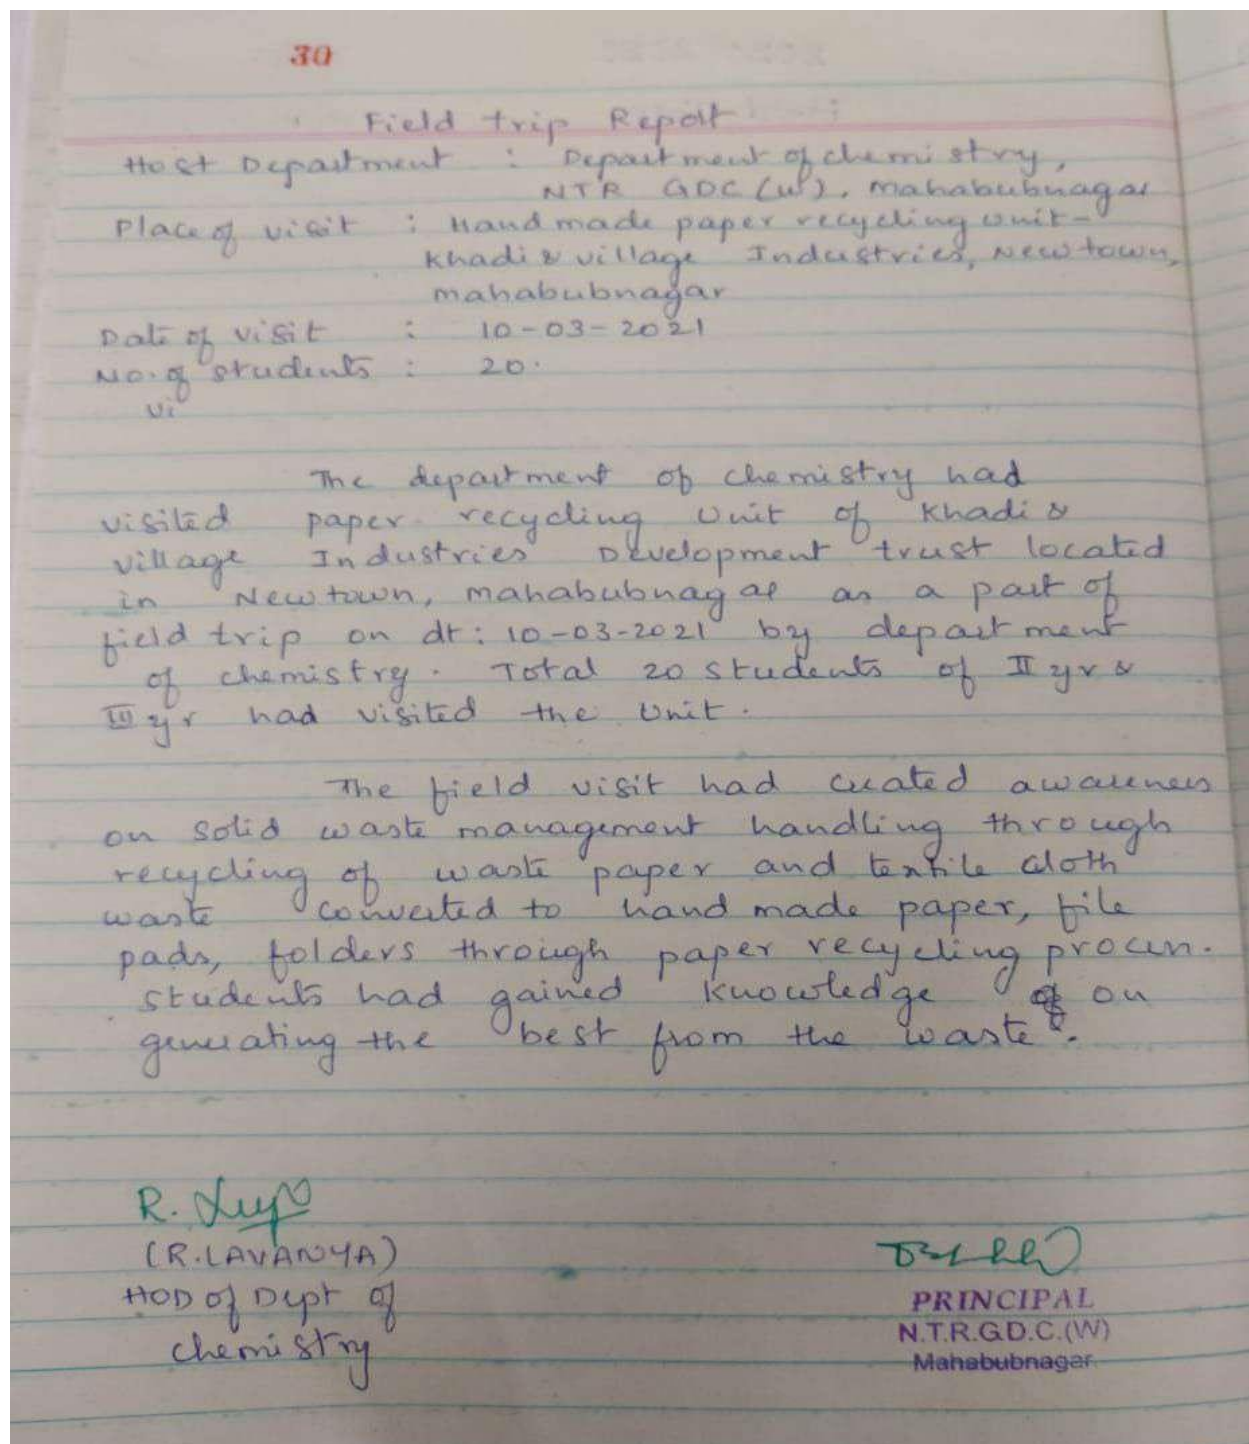 30
Field trip Report
Host Department : Department of chemistry,
NTR GDC (w), Mahabubnagar
Place of visit : Hand made paper recycling unit-
Khadi & village Industries, New town,
mahabubnagar
Date of visit : 10-03-2021
No. of students : 20.
Vi
The department of chemistry had
visited paper recycling Unit of Khadi &
village Industries Development trust located
in New town, mahabubnagar as a part of
field trip on dt: 10-03-2021 by department
of chemistry. Total 20 students of II yr &
III yr had visited the Unit.
The field visit had created awareness
on solid waste management handling through
recycling of waste paper and textile cloth
waste converted to hand made paper, file
pads, folders through paper recycling process.
students had gained knowledge on
generating the best from the waste.
R.
(R. LAVANYA)
HOD of Dept of
chemistry
PRINCIPAL
N.T.R.G.D.C.(W)
Mahabubnagar.